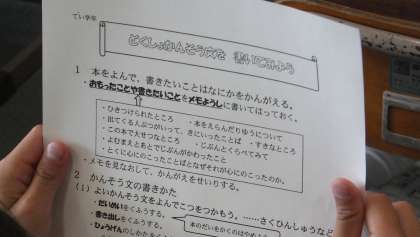 てい学年
どくしょかんそう文を 書いてみよう
1 本をよんで、書きたいことはなにかをかんがえる。
・おもったことや書きたいことをメモようしに書いてはっておく。
・ひきつけられたところ ・本をえらんだりゆうについて
・出てくる人ぶつがいって、きにいったことば ・すきなところ
・この本で大せつなところ ・じぶんとくらべてみて
・よむまえとあとでじぶんがかわったこと
・とくに心にのこったことばとなぜそれが心にのこったのか。
・メモを見なおして、かんがえをせいりする。
2 かんそう文の書きかた
(1) よいかんそう文をよんでこつをつかもう。……さくひんしゅうなど
・だいめいをくふうする。
・書き出しをくふうする。
・ひょうげんのしかたを
本のだいをかくのはやめよう